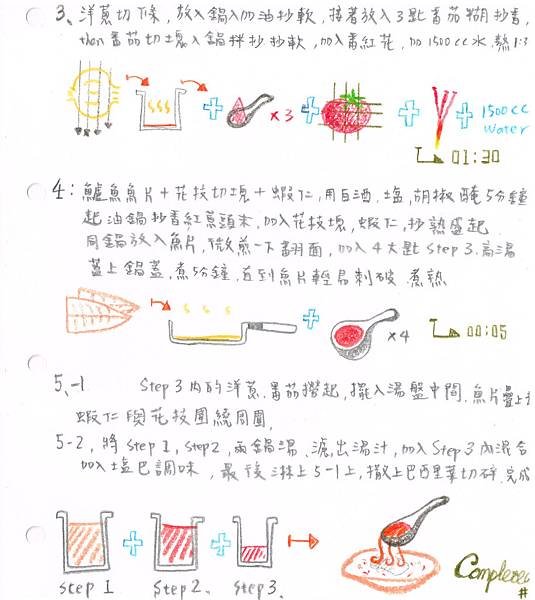 3、洋蔥切條，放入鍋入加油抄軟，接著放入3匙番茄糊抄香，
then番茄切塊入鍋拌抄抄軟，加入番紅花，加1500cc水.熬1:3
x3
1500cc
water
01:30
4：鱸魚魚片+花枝切塊+蝦仁，用白酒.塩，胡椒醃5分鐘
起油鍋抄香紅蔥頭末，加入花枝塊，蝦仁，抄熟盛起
同鍋放入魚片，微煎一下翻面，加入4大匙Step 3.高湯
蓋上鍋蓋，煮5分鐘，直到魚片輕易刺破.煮熟
x4
00:05
5、-1 Step 3內的洋蔥.番茄撈起，擺入湯盤中間.魚片疊上
蝦仁與花枝圍繞周圍，
5-2，將Step 1，Step2，兩鍋湯、濾出湯汁，加入Step3內混合
加入塩巴調味，最後淋上5-1上，撒上巴西里葉切碎.完成
Step 1
Step 2.
Step 3.
#